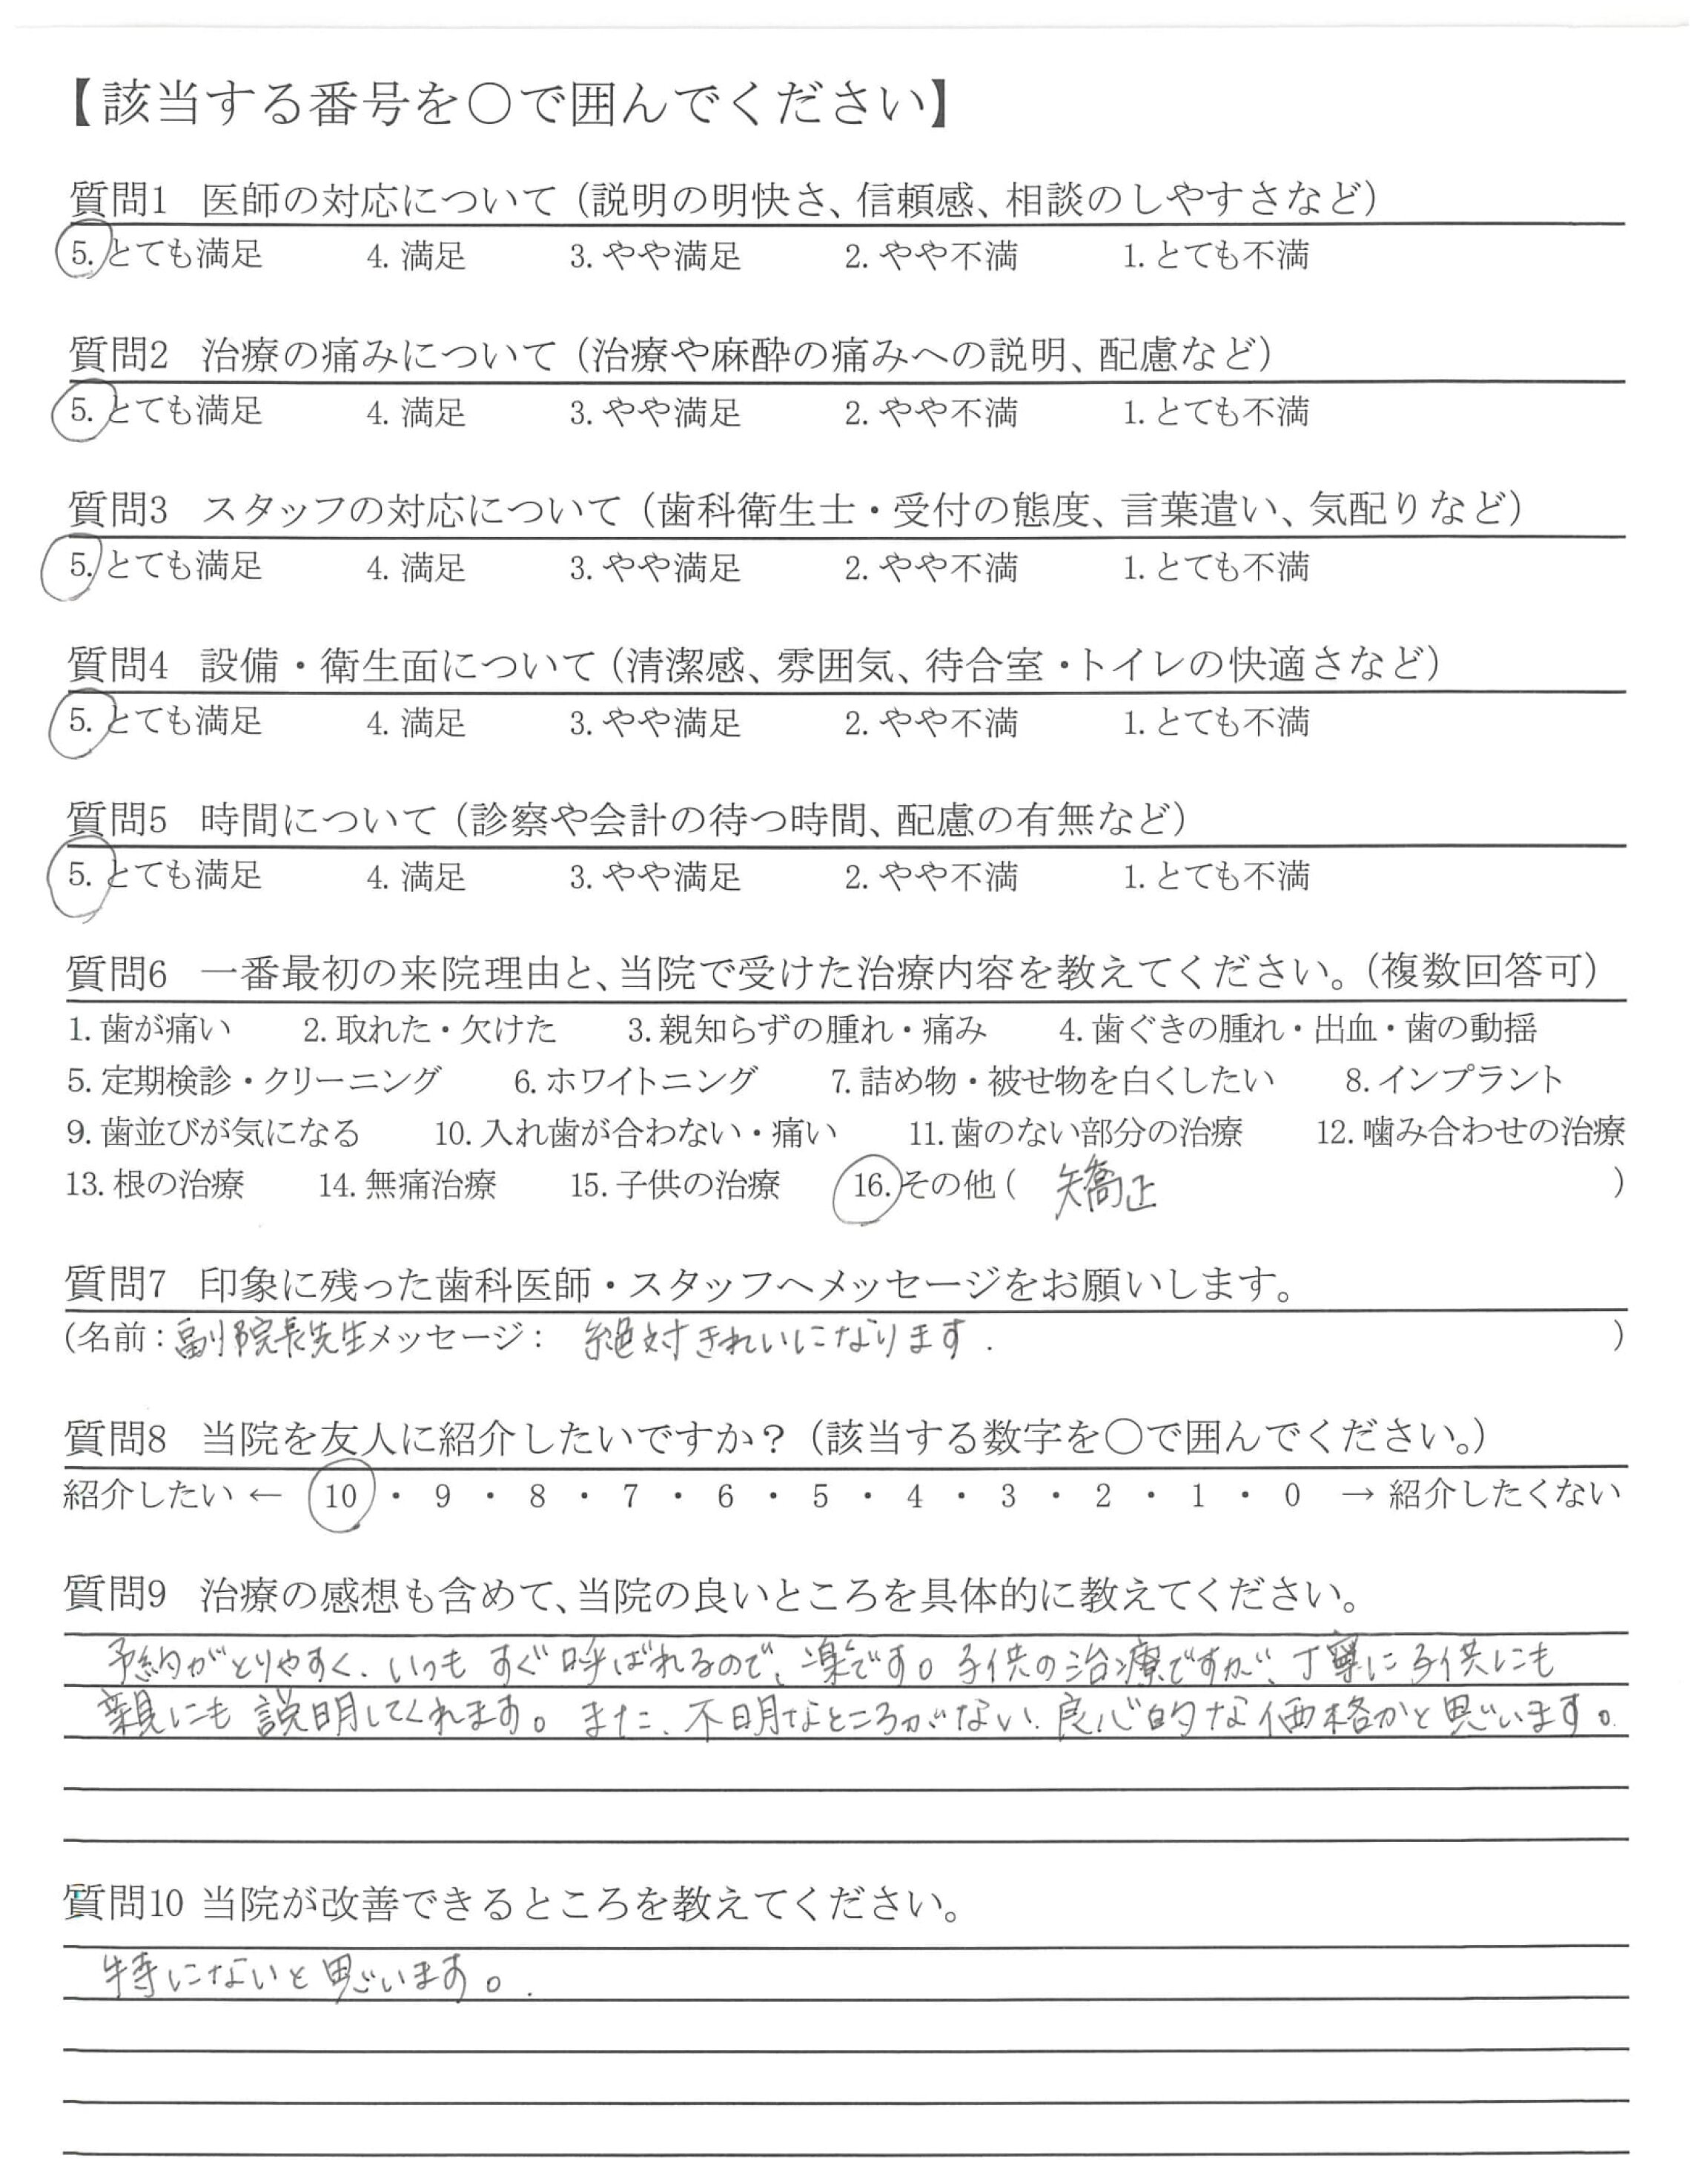 【該当する番号を〇で囲んでください】
質問1 医師の対応について（説明の明快さ、信頼感、相談のしやすさなど）
5. とても満足 4. 満足 3. やや満足 2. やや不満 1. とても不満
質問2 治療の痛みについて（治療や麻酔の痛みへの説明、配慮など）
5. とても満足 4. 満足 3. やや満足 2. やや不満 1. とても不満
質問3 スタッフの対応について（歯科衛生士・受付の態度、言葉遣い、気配りなど）
5. とても満足 4. 満足 3. やや満足 2. やや不満 1. とても不満
質問4 設備・衛生面について（清潔感、雰囲気、待合室・トイレの快適さなど）
5. とても満足 4. 満足 3. やや満足 2. やや不満 1. とても不満
質問5 時間について（診察や会計の待つ時間、配慮の有無など）
5. とても満足 4. 満足 3. やや満足 2. やや不満 1. とても不満
質問6 一番最初の来院理由と、当院で受けた治療内容を教えてください。（複数回答可）
1. 歯が痛い 2. 取れた・欠けた 3. 親知らずの腫れ・痛み 4. 歯ぐきの腫れ・出血・歯の動揺
5. 定期検診・クリーニング 6. ホワイトニング 7. 詰め物・被せ物を白くしたい 8. インプラント
9. 歯並びが気になる 10. 入れ歯が合わない・痛い 11. 歯のない部分の治療 12. 噛み合わせの治療
13. 根の治療 14. 無痛治療 15. 子供の治療 16. その他（ 矯正 ）
質問7 印象に残った歯科医師・スタッフへメッセージをお願いします。
（名前：副院長先生メッセージ： 絶対きれいになります. ）
質問8 当院を友人に紹介したいですか？（該当する数字を〇で囲んでください。）
紹介したい ← 10 ・ 9 ・ 8 ・ 7 ・ 6 ・ 5 ・ 4 ・ 3 ・ 2 ・ 1 ・ 0 → 紹介したくない
質問9 治療の感想も含めて、当院の良いところを具体的に教えてください。
予約がとりやすく、いつも すぐ呼ばれるので、楽です。子供の治療ですが、丁寧に子供にも
親にも説明してくれます。また、不明なところがない、良心的な価格かと思います。
質問10 当院が改善できるところを教えてください。
特にないと思います。